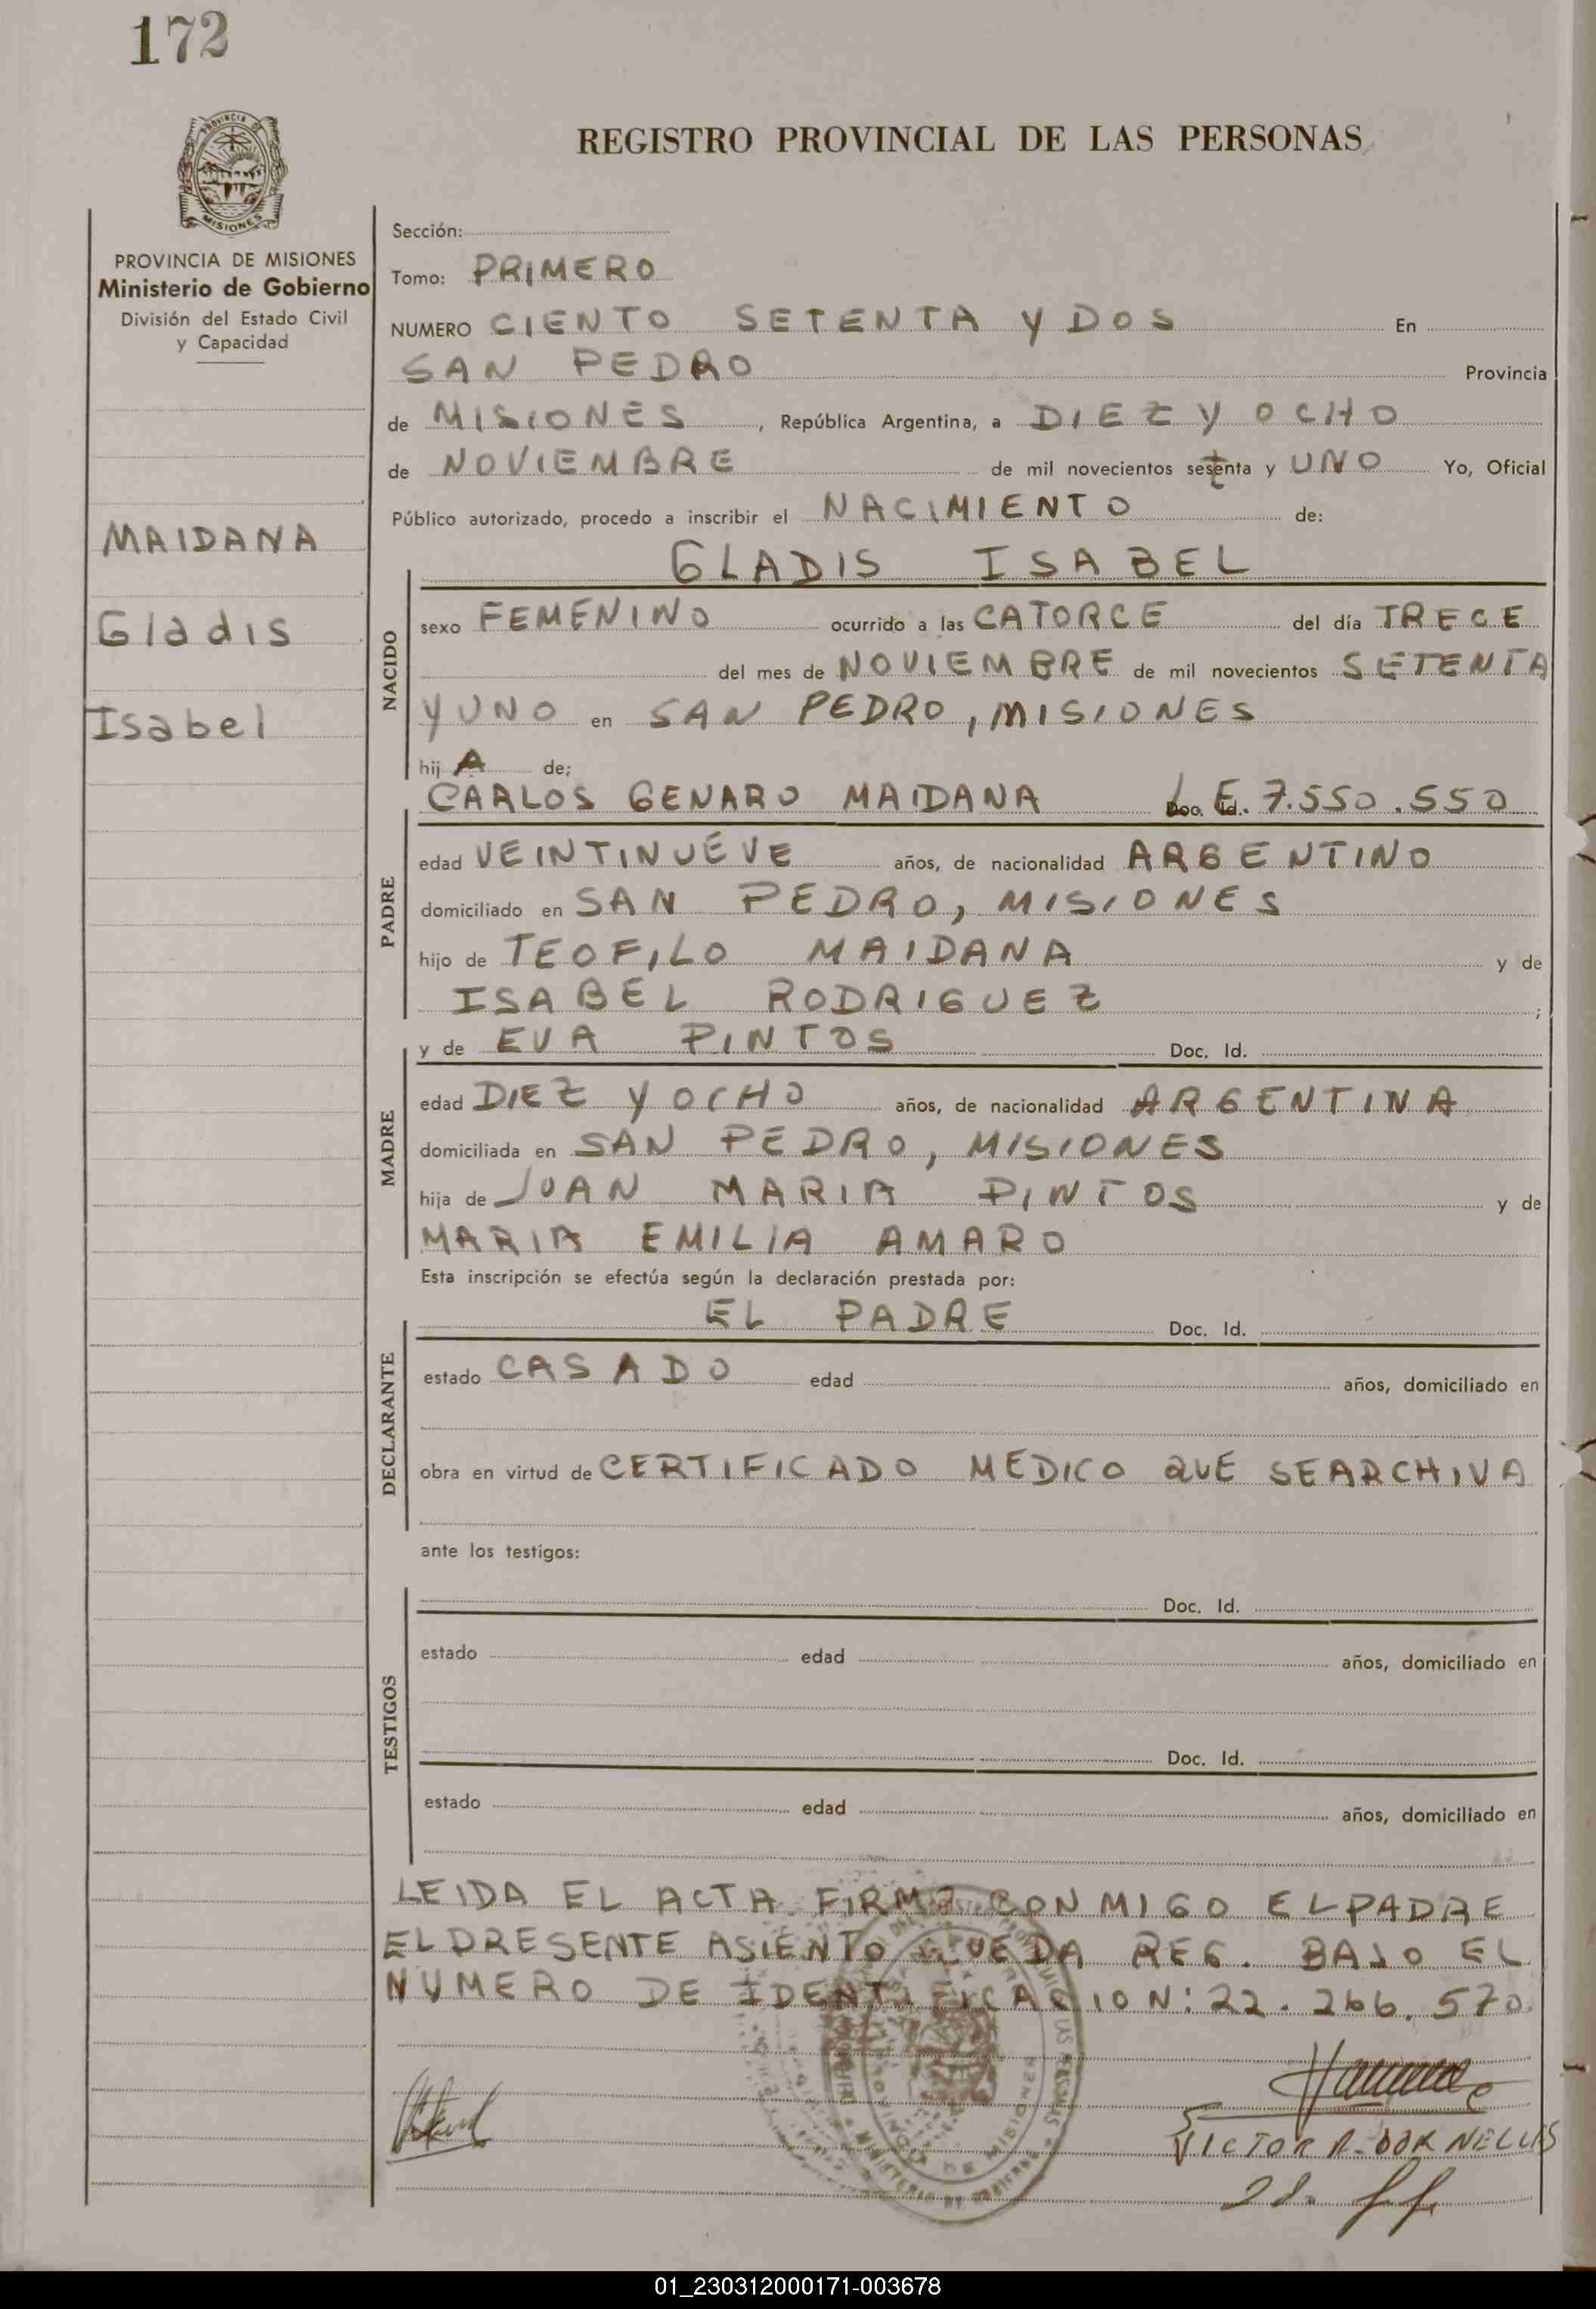 172
REGISTRO PROVINCIAL DE LAS PERSONAS
PROVINCIA DE MISIONES
Ministerio de Gobierno
División del Estado Civil
y Capacidad
MAIDANA
Gladis
Isabel
Sección:
Tomo: PRIMERO
NUMERO CIENTO SETENTA Y DOS En
SAN PEDRO Provincia
de MISIONES, República Argentina, a DIEZ Y OCHO
de NOVIEMBRE de mil novecientos setenta y UNO Yo, Oficial
Público autorizado, procedo a inscribir el NACIMIENTO de:
GLADIS ISABEL
NACIDO
sexo FEMENINO ocurrido a las CATORCE del día TRECE
del mes de NOVIEMBRE de mil novecientos SETENTA
Y UNO en SAN PEDRO, MISIONES
hij A de;
CARLOS GENARO MAIDANA L.E. 7.550.550
PADRE
edad VEINTINUEVE años, de nacionalidad ARGENTINO
domiciliado en SAN PEDRO, MISIONES
hijo de TEOFILO MAIDANA y de
ISABEL RODRIGUEZ ;
y de EVA PINTOS Doc. Id.
MADRE
edad DIEZ Y OCHO años, de nacionalidad ARGENTINA
domiciliada en SAN PEDRO, MISIONES
hija de JUAN MARIA PINTOS y de
MARIA EMILIA AMARO
Esta inscripción se efectúa según la declaración prestada por:
EL PADRE Doc. Id.
DECLARANTE
estado CASADO edad años, domiciliado en
obra en virtud de CERTIFICADO MEDICO QUE SE ARCHIVA
ante los testigos:
Doc. Id.
TESTIGOS
estado edad años, domiciliado en
Doc. Id.
estado edad años, domiciliado en
LEIDA EL ACTA FIRMA CONMIGO EL PADRE
EL PRESENTE ASIENTO QUEDA REG. BAJO EL
NUMERO DE IDENTIFICACION: 22.266.570
PROVINCIA DE MISIONES
MINISTERIO DE GOBIERNO
VICTOR
01_230312000171-003678